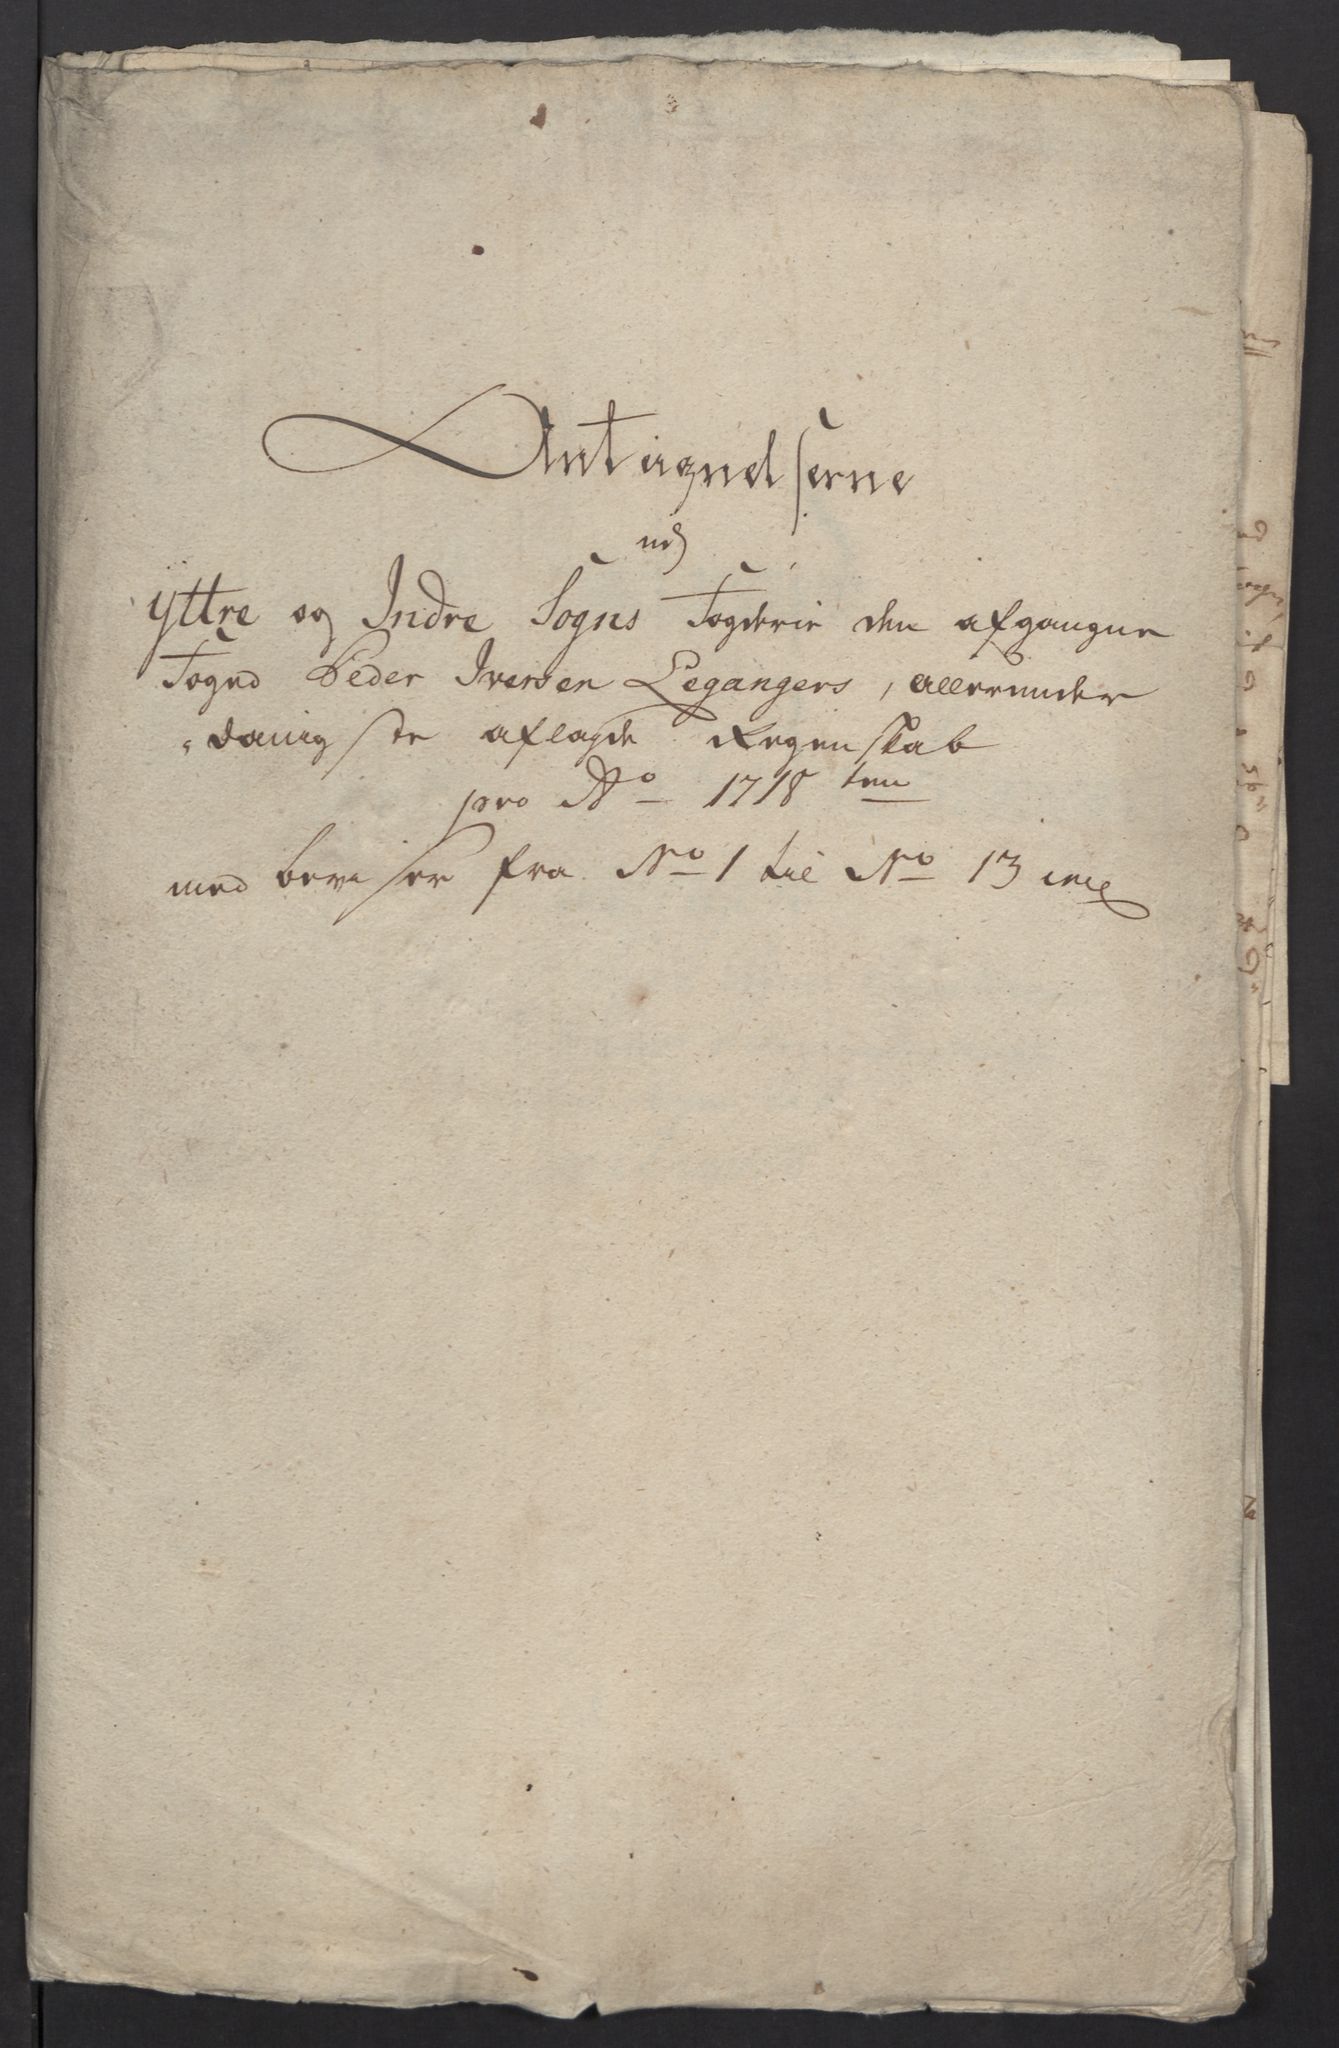 Antegnelserne
udj
Yttre og Indre Sogns Fogderie den afgangne
Foged Peder Iversen Legangers, allerunder
=danigste aflagde Regenskab
pro Ao 1718 ten
med beviser fra No 1 til No 13 incl